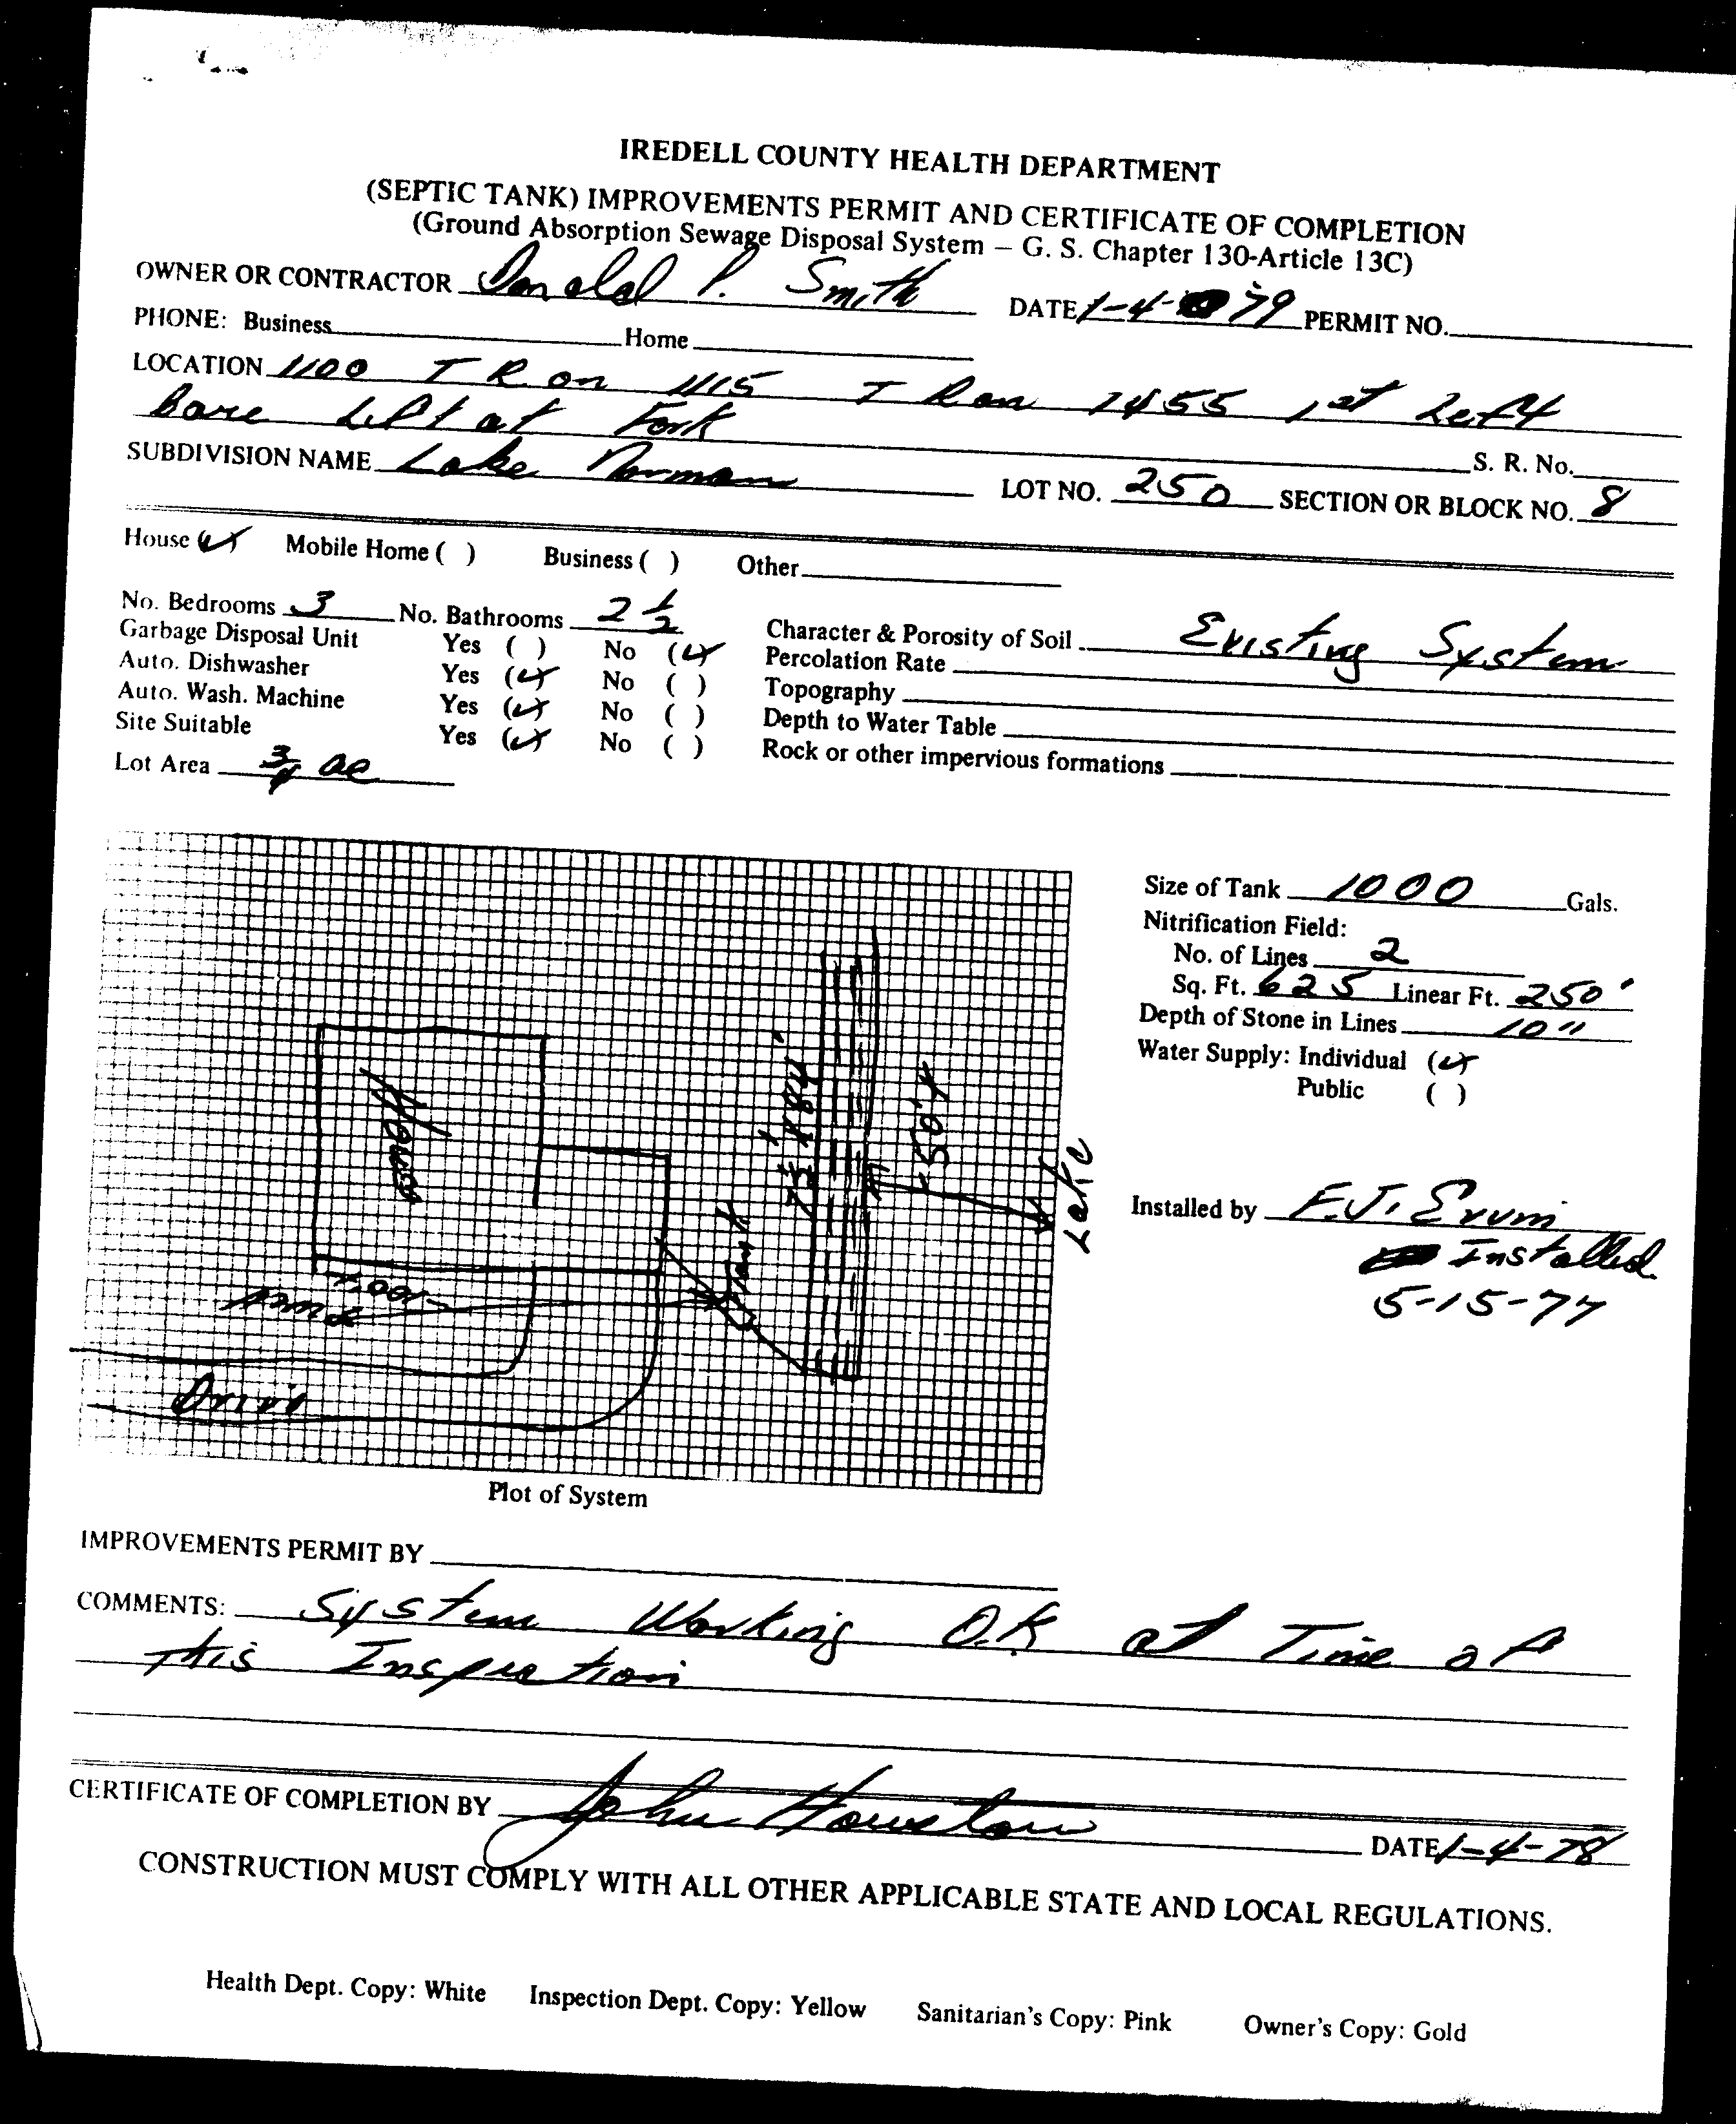 IREDELL COUNTY HEALTH DEPARTMENT
(SEPTIC TANK) IMPROVEMENTS PERMIT AND CERTIFICATE OF COMPLETION
(Ground Absorption Sewage Disposal System – G. S. Chapter 130-Article 13C)
OWNER OR CONTRACTOR Donald P. Smith DATE 1-4-79 PERMIT NO.
PHONE: Business Home
LOCATION 1100 T R on 1115 T R on 1455 1st Left
bare Left at Fork S. R. No.
SUBDIVISION NAME Lake Norman LOT NO. 250 SECTION OR BLOCK NO. 8
House (✓) Mobile Home ( ) Business ( ) Other
No. Bedrooms 3 No. Bathrooms 2 1/2
Garbage Disposal Unit Yes ( ) No (✓)
Auto. Dishwasher Yes (✓) No ( )
Auto. Wash. Machine Yes (✓) No ( )
Site Suitable Yes (✓) No ( )
Lot Area 3/4 ac
Character & Porosity of Soil Existing System
Percolation Rate
Topography
Depth to Water Table
Rock or other impervious formations
House
75' 184'
50'+
Lake
Tank
100'+
Drive
Plot of System
Size of Tank 1000 Gals.
Nitrification Field:
No. of Lines 2
Sq. Ft. 625 Linear Ft. 250'
Depth of Stone in Lines 10"
Water Supply: Individual (✓)
Public ( )
Installed by F.J. Ervin
Installed
5-15-77
IMPROVEMENTS PERMIT BY
COMMENTS: System Working O.K at Time of
this Inspection
CERTIFICATE OF COMPLETION BY John Houston DATE 1-4-78
CONSTRUCTION MUST COMPLY WITH ALL OTHER APPLICABLE STATE AND LOCAL REGULATIONS.
Health Dept. Copy: White Inspection Dept. Copy: Yellow Sanitarian's Copy: Pink Owner's Copy: Gold